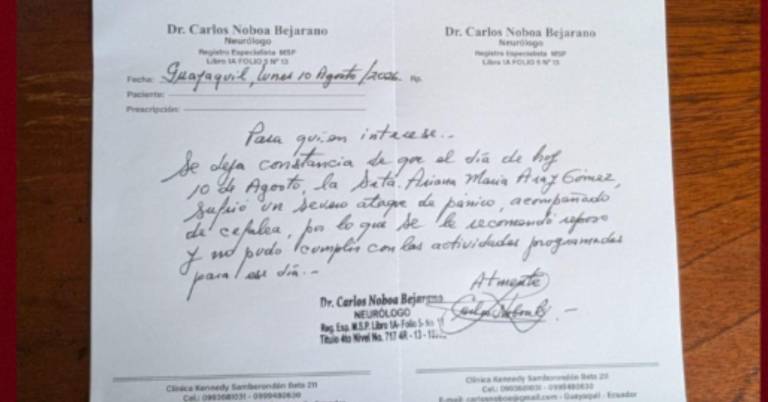 Dr. Carlos Noboa Bejarano
Neurólogo
Registro Especialista MSP
Libro 1A FOLIO 5 Nº 13
Fecha: Guayaquil, lunes 10 Agosto/2026
Paciente:
Prescripción:
Dr. Carlos Noboa Bejarano
Neurólogo
Registro Especialista MSP
Libro 1A FOLIO 5 Nº 13
Rp.
Para quien interese.-
Se deja constancia de que el día de hoy
10 de Agosto, la Srta. Ariana Maria Gómez,
sufrió un severo ataque de pánico, acompañado
de cefalea, por lo que se le recomendó reposo
y no pudo cumplir con las actividades programadas
para ese día.-
Atmente
Dr. Carlos Noboa Bejarano
NEURÓLOGO
Reg. Esp. M.S.P. Libro 1A-Folio 5- No 1
Titulo 4to Nivel No. 717 4R - 13 -
Clínica Kennedy Samborondón Beta 211
Cel.: 0983681031 - 0999480630
Clínica Kennedy Samborondón Beta 211
Cel.: 0983681031 - 0999480630
E-mail: carlosnoboa@gmail.com - Guayaquil - Ecuador